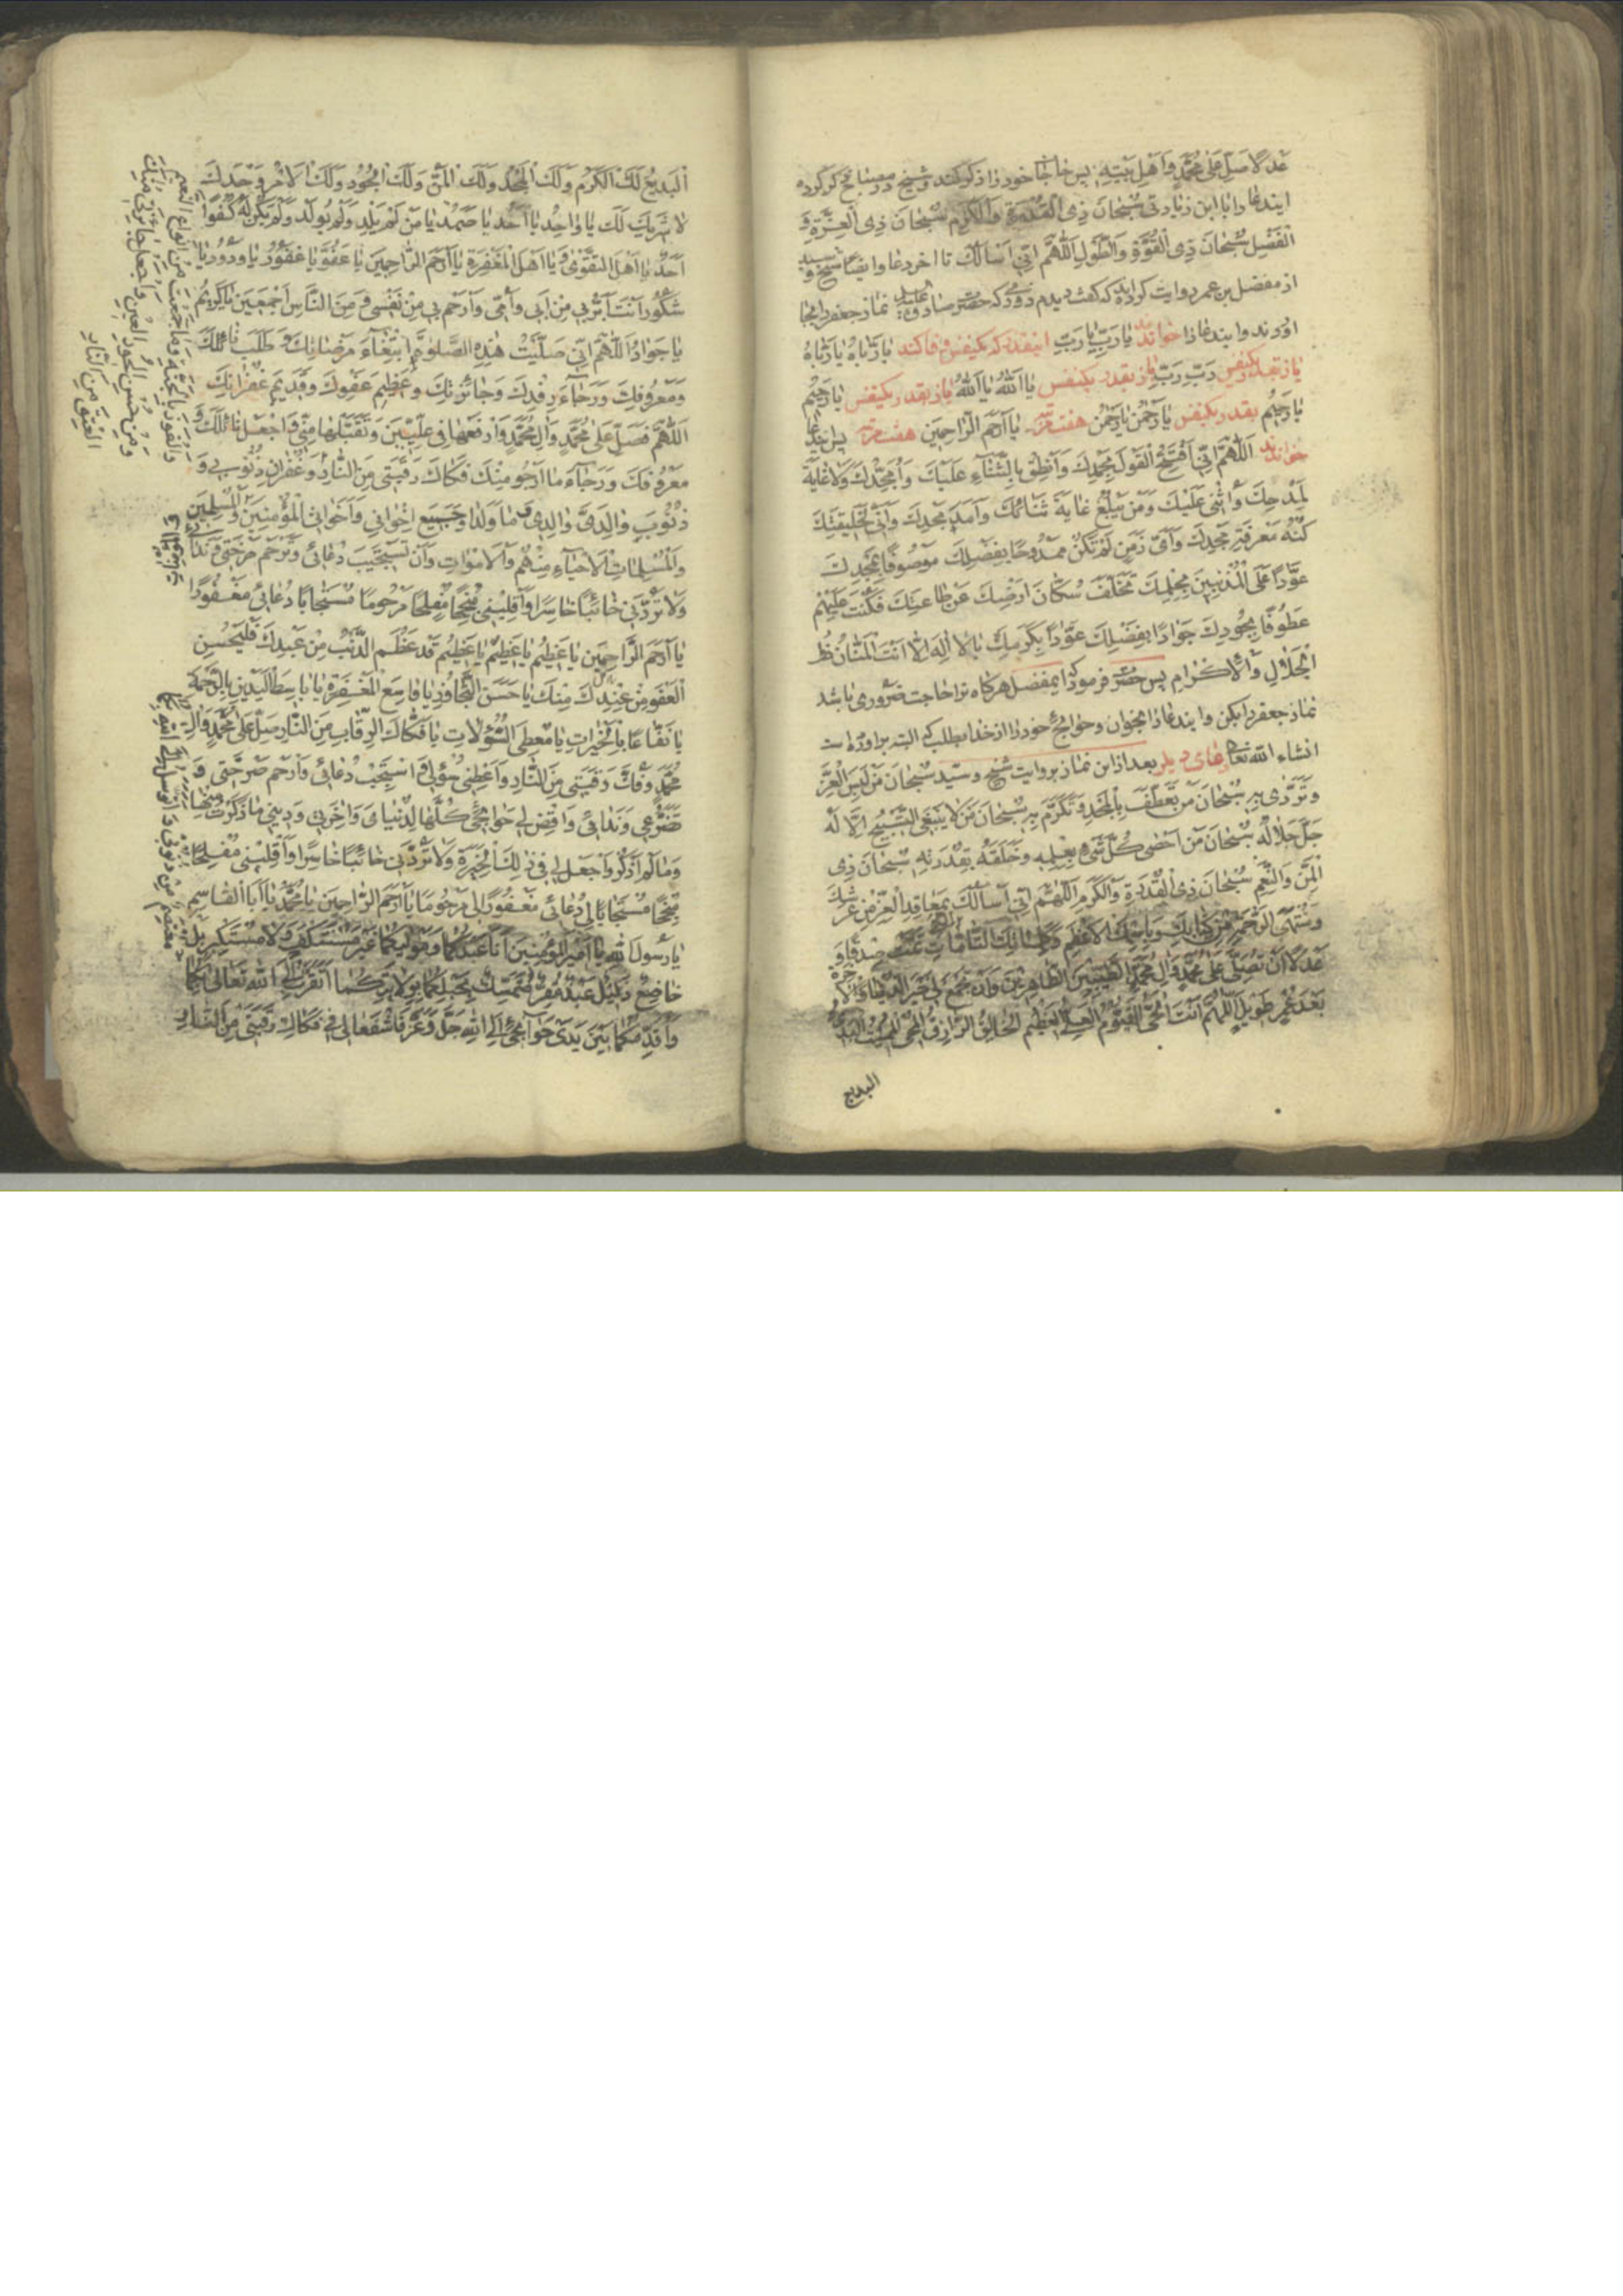 عدلا صل علی محمد و اهل بیته پس حاجات خود را ذکر کند و شیخ در مصباح ذکر کرده
ایندعا را با این زیادتی سبحان ذی القدرة والکرم سبحان ذی العزة و
الفضل سبحان ذی القوة والطول اللهم انی اسالک تا اخر دعا وایضا شیخ و سید
از مفضل بن عمر روایت کرده‌اند که گفت دیدم روزی که حضرت صادق علیه نماز جعفر را بجا
اوردند و ایندعا را خواندند یا رب یا رب اینقدر که یکنفس وفا کند یا رباه یا رباه
باز بقدر یکنفس رب رب باز بقدر یکنفس یا الله یا الله باز بقدر یکنفس یا رحیم
یا رحیم بقدر یکنفس یا رحمن یا رحمن هفت مرتبه یا ارحم الراحمین هفت مرتبه پس ایندعا
خواندند اللهم انی افتتح القول بحمدک وانطق بالثناء علیک وامجدک ولا غایة
لمدحک واثنی علیک ومن یبلغ غایة ثنائک وامد مجدک وانی لخلیقتک
کنه معرفة مجدک وای زمن لم تکن ممدوحا بفضلک موصوفا بمجدک
عوادا علی المذنبین بحلمک تخلف سکان ارضک عن طاعتک فکنت علیهم
عطوفا بجودک جوادا بفضلک عوادا بکرمک یا لا اله الا انت المنان ذو
الجلال والاکرام پس حضرت فرمود که ایمفضل هرگاه ترا حاجت ضروری باشد
نماز جعفر را بکن و ایندعا را بخوان و حوایج خود را از خدا بطلب که البته براورده است
انشاء الله تعالی دعای دیگر بعد از این نماز بروایت شیخ و سید سبحان من لبس العز
وتردی به سبحان من تعطف بالمجد وتکرم به سبحان من لا ینبغی التسبیح الا له
جل جلاله سبحان من احصی کل شیء بعلمه وخلقه بقدرته سبحان ذی
المن والنعم سبحان ذی القدرة والکرم اللهم انی اسالک بمعاقد العز من عرشک
ومنتهی الرحمة من کتابک وباسمک الاعظم وکلماتک التامات التی تمت صدقا و
عدلا ان تصلی علی محمد وال محمد الطیبین الطاهرین وان تجمع لی خیر الدنیا والاخرة
بعد عمر طویل اللهم انت الحی القیوم العلی العظیم الخالق الرازق المحی الممیت البدی
البدیع
البدیع لک الکرم ولک المجد ولک المن ولک الجود ولک الامر وحدک
لا شریک لک یا واحد یا احد یا صمد یا من لم یلد ولم یولد ولم یکن له کفوا
احد یا اهل التقوی ویا اهل المغفرة یا ارحم الراحمین یا عفو یا غفور یا ودود یا
شکور انت ابر بی من ابی وامی وارحم بی من نفسی ومن الناس اجمعین یا کریم
یا جواد اللهم انی صلیت هذه الصلوة ابتغاء مرضاتک وطلب نائلک
ومعروفک ورجاء رفدک وجائزتک وعظیم عفوک وقدیم غفرانک
اللهم فصل علی محمد وال محمد وارفعها فی علیین وتقبلها منی واجعل نائلک و
معروفک ورجاء ما ارجو منک فکاک رقبتی من النار
والفوز بالجنة وما جمعت من انواع النعیم
ومن حسن الحور العین واجعل جائزتی منک
العتق من النار
وغفران ذنوبی و
ذنوب والدی والدی وما ولدا وجمیع اخوانی واخواتی المؤمنین والمسلمین
والمسلمات الاحیاء منهم والاموات وان تستجیب دعائی وترحم صرختی وندائی
ولا تردنی خائبا خاسرا واقلبنی منجحا مفلحا مرحوما مستجابا دعائی مغفورا
یا ارحم الراحمین یا عظیم یا عظیم یا عظیم قد عظم الذنب من عبدک فلیحسن
العفو من عندک منک یا حسن التجاوز یا واسع المغفرة یا باسط الیدین بالرحمة
یا نفاعا بالخیرات یا معطی السؤلات یا فکاک الرقاب من النار صل علی محمد وال
محمد وفک رقبتی من النار واعطنی سؤلی واستجب دعائی وارحم صرختی و
تضرعی وندائی واقض لی حوائجی کلها لدنیای واخرتی ودینی ما ذکرت منها
وما لم اذکر واجعل لی فی ذلک الخیرة ولا تردنی خائبا خاسرا واقلبنی مفلحا
منجحا مستجابا لی دعائی مغفورا لی مرحوما یا ارحم الراحمین یا محمد یا ابا القاسم
یا رسول الله یا امیر المؤمنین انا عبدکما ومولیکما غیر مستنکف ولا مستکبر بل
خاضع ذلیل عبد مقر متمسک بحبلکما بولایتکما اتقرب الی الله تعالی بکما
واقدمکما بین یدی حوائجی الی الله جل وعز فاشفعا لی فی فکاک رقبتی من النار